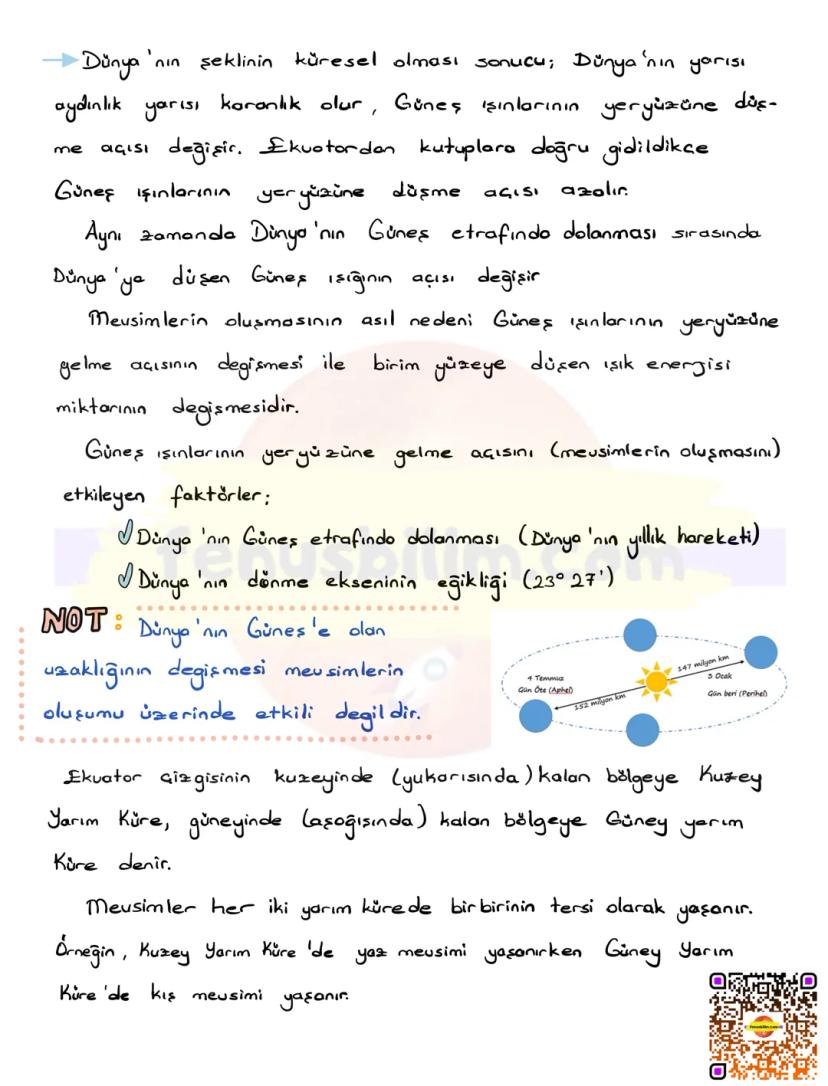 → Dünya'nın şeklinin küresel olması sonucu; Dünya'nın yarısı
aydınlık yarısı karanlık olur, Güneş ışınlarının yeryüzüne düş-
me açısı değişir. Ekvatordan kutuplara doğru gidildikçe
Güneş ışınlarının yeryüzüne düşme açısı azalır.
Aynı zamanda Dünya'nın Güneş etrafında dolanması sırasında
Dünya'ya düşen Güneş ışığının açısı değişir
Mevsimlerin oluşmasının asıl nedeni Güneş ışınlarının yeryüzüne
gelme açısının değişmesi ile birim yüzeye düşen ışık enerjisi
miktarının değişmesidir.
Güneş ışınlarının yeryüzüne gelme açısını (mevsimlerin oluşmasını)
etkileyen faktörler;
✓ Dünya'nın Güneş etrafında dolanması (Dünya'nın yıllık hareketi)
✓ Dünya'nın dönme ekseninin eğikliği (23° 27')
fenusbilim.com
NOT: Dünya'nın Güneş'e olan
uzaklığının değişmesi mevsimlerin
oluşumu üzerinde etkili değildir.
4 Temmuz
Gün Öte (Aphel)
152 milyon km
147 milyon km
3 Ocak
Gün beri (Perihel)
Ekvator çizgisinin kuzeyinde (yukarısında) kalan bölgeye Kuzey
Yarım Küre, güneyinde (aşağışında) kalan bölgeye Güney yarım
Küre denir.
Mevsimler her iki yarım kürede birbirinin tersi olarak yaşanır.
Örneğin, Kuzey Yarım Küre'de yaz mevsimi yaşanırken Güney Yarım
Küre'de kış mevsimi yaşanır.
fenusbilim.com